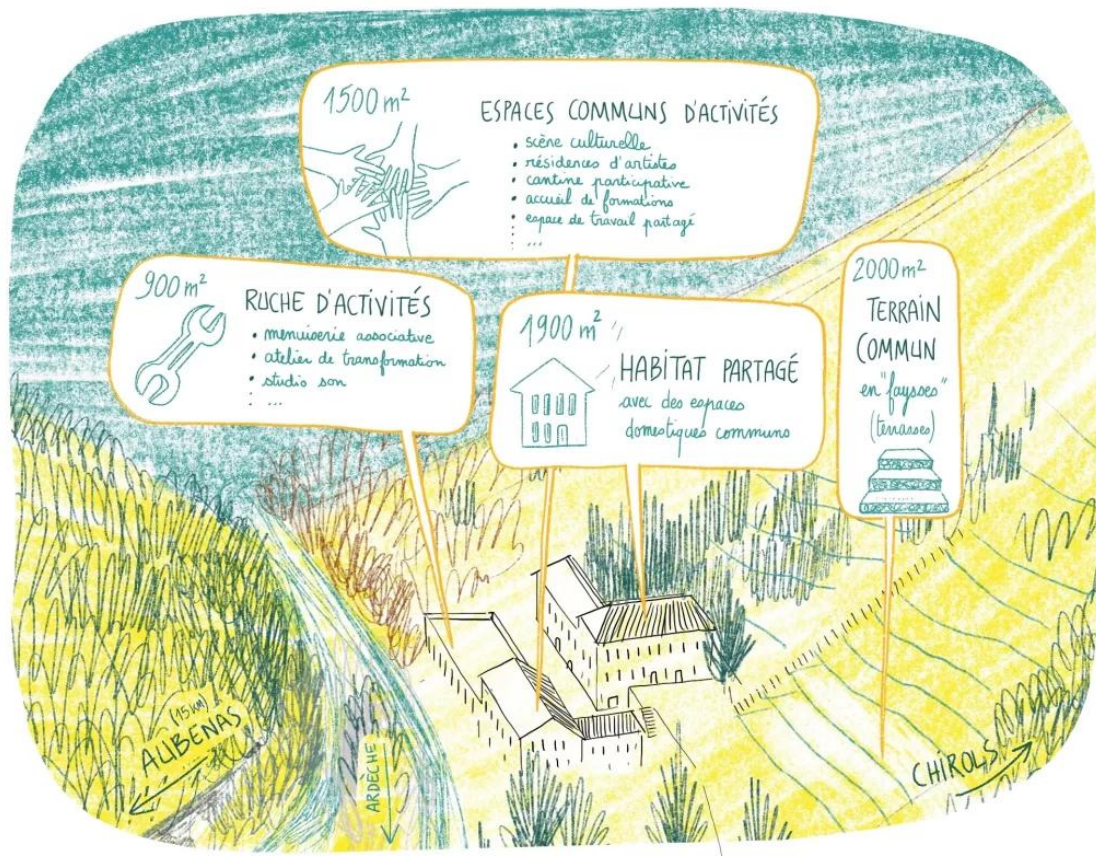 1500 m²
ESPACES COMMUNS D'ACTIVITÉS
• scène culturelle
• résidences d'artistes
• cantine participative
• accueil de formations
• espace de travail partagé
...
900 m²
RUCHE D'ACTIVITÉS
• menuiserie associative
• atelier de transformation
• studio son
...
1900 m²
HABITAT PARTAGÉ
avec des espaces
domestiques communs
2000 m²
TERRAIN
COMMUN
en "faysses"
(terrasses)
(15 km)
AUBENAS
ARDÈCHE
CHIROLS